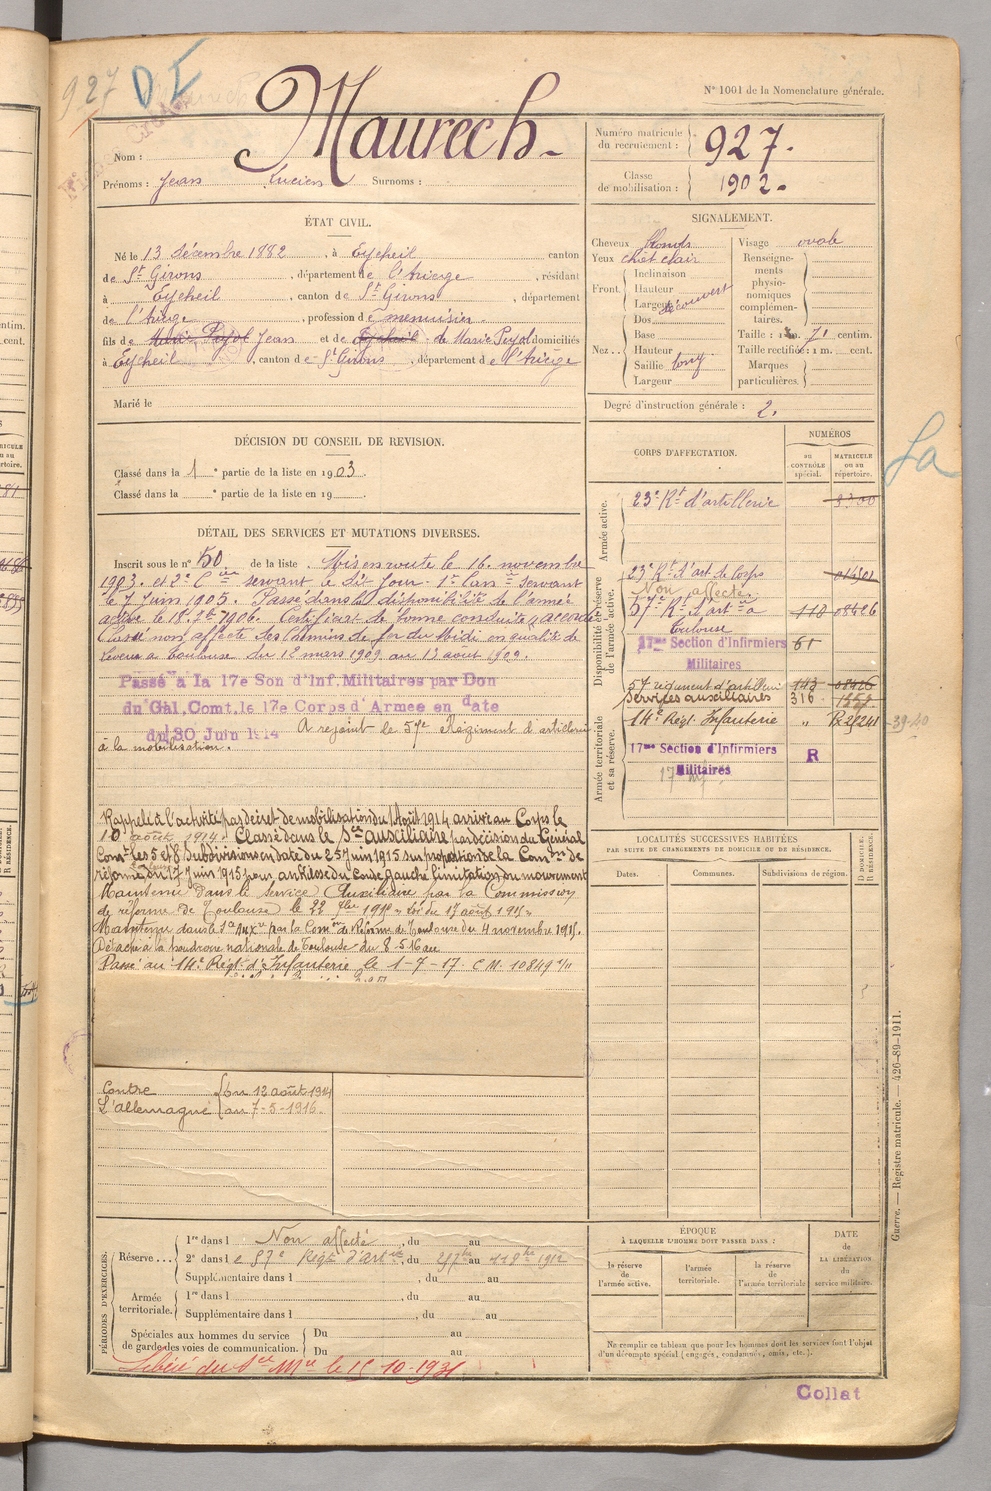 927 D I
N° 1001 de la Nomenclature générale.
Nom : Maurech
Prénoms : Jean Lucien Surnoms :
Numéro matricule du recrutement : 927.
Classe de mobilisation : 1902.
ÉTAT CIVIL.
Né le 13 décembre 1882, à Eycheil, canton
de St Girons, département de l'Ariège, résidant
à Eycheil, canton de St Girons, département
de l'Ariège, profession de menuisier.
fils de Marie Pujol Jean et de Eycheil de Marie Pujol domiciliés
à Eycheil, canton de St Girons, département de l'Ariège
Marié le
SIGNALEMENT.
Cheveux blonds
Yeux chat clair
Front. Inclinaison
Hauteur
Largeur découvert
Nez... Dos
Base
Hauteur
Saillie long
Largeur
Visage ovale
Renseignements physionomiques complémentaires.
Taille : 1 m. 71 centim.
Taille rectifiée : 1 m. cent.
Marques particulières.
Degré d'instruction générale : 2.
DÉCISION DU CONSEIL DE REVISION.
Classé dans la 1e partie de la liste en 1903.
Classé dans la e partie de la liste en 19
DÉTAIL DES SERVICES ET MUTATIONS DIVERSES.
Inscrit sous le n° 50 de la liste. Mis en route le 16 novembre
1903. et 2e Cer servant le dit jour. 1er Can er servant
le 7 Juin 1905. Passé dans la disponibilité de l'armée
active le 18 1906. Certificat de bonne conduite "accordé"
Classé non affecté des Chemins de fer du Midi en qualité de
à Toulouse du 12 mars 1909 au 13 août 1909.
Passé à la 17e Son d'Inf. Militaires par Don
du Gal. Comt. le 17e Corps d'Armée en date
du 30 Juin 1914 A rejoint le 57e Régiment d'artillerie
à la mobilisation.
Rappelé à l'activité par décret de mobilisation du 1 Août 1914 arrivé au Corps le
10 août 1914. Classé dans le Sce auxiliaire par décision du Général
Comt les 5 et 8 Subdivisions en date du 25 juin 1915 sur proposition de la Comon de
réforme du 17 Juin 1915 pour ankylose du coude gauche limitation du mouvement
Maintenu dans le service Auxiliaire par la Commission
de réforme de Toulouse le 22 7bre 1915 " loi du 17 août 1915 "
Maintenu dans le Sce Auxre par la Comon de Réforme de Toulouse du 4 novembre 1915.
Détaché à la poudrerie nationale de Toulouse du 8-5-16 au
Passé au 14e Régt d'Infanterie le 1-7-17. C.M. 10849
Contre L'allemagne du 12 août 1914
au 7-5-1916.
CORPS D'AFFECTATION.
NUMÉROS
au CONTRÔLE spécial.
MATRICULE ou au répertoire.
La
Armée active.
23e Rt d'artillerie
Disponibilité et réserve de l'armée active.
23e Rt d'art de Corps
Non affecté
57e Rt d'art à Toulouse 118 08426
17me Section d'Infirmiers Militaires 61
57 régiment d'artillerie 143 08426
Armée territoriale et sa réserve.
Services auxiliaires 316
14e Régt Infanterie "
39-40
17me Section d'Infirmiers Militaires R
LOCALITÉS SUCCESSIVES HABITÉES
PAR SUITE DE CHANGEMENTS DE DOMICILE OU DE RÉSIDENCE.
Dates. Communes. Subdivisions de région. D DOMICILE. R RÉSIDENCE.
PÉRIODES D'EXERCICES.
Réserve... 1re dans l Non affecté, du au
2e dans le 57e Régt d'artie, du au 1912
Supplémentaire dans l, du au
Armée territoriale. 1re dans l, du au
Supplémentaire dans l, du au
Spéciales aux hommes du service de garde des voies de communication. Du au
Du au
Libéré du Sce Mre le 15 10-1931
ÉPOQUE
À LAQUELLE L'HOMME DOIT PASSER DANS :
la réserve de l'armée active.
l'armée territoriale.
la réserve de l'armée territoriale
DATE de LA LIBÉRATION du service militaire.
Ne remplir ce tableau que pour les hommes dont les services font l'objet
d'un décompte spécial (engagés, condamnés, omis, etc.).
Collat
Guerre. — Registre matricule. — 426-89-1911.